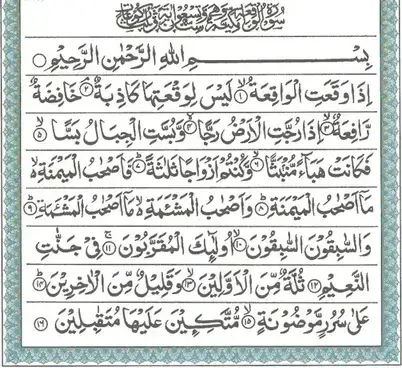 بِسْمِ اللهِ الرَّحْمٰنِ الرَّحِيْمِ
اِذَا وَقَعَتِ الْوَاقِعَةُ ۱ لَيْسَ لِوَقْعَتِهَا كَاذِبَةٌ ۲ خَافِضَةٌ
رَّافِعَةٌ ۳ اِذَا رُجَّتِ الْاَرْضُ رَجًّا ۴ وَّبُسَّتِ الْجِبَالُ بَسًّا ۵
فَكَانَتْ هَبَآءً مُّنْۢبَثًّا ۶ وَّكُنْتُمْ اَزْوَاجًا ثَلٰثَةً ۷ فَاَصْحٰبُ الْمَيْمَنَةِ
مَاۤ اَصْحٰبُ الْمَيْمَنَةِ ۸ وَاَصْحٰبُ الْمَشْـَٔمَةِ مَاۤ اَصْحٰبُ الْمَشْـَٔمَةِ ۹
وَالسّٰبِقُوْنَ السّٰبِقُوْنَ ۱۰ اُولٰٓئِكَ الْمُقَرَّبُوْنَ ۱۱ فِيْ جَنّٰتِ
النَّعِيْمِ ۱۲ ثُلَّةٌ مِّنَ الْاَوَّلِيْنَ ۱۳ وَقَلِيْلٌ مِّنَ الْاٰخِرِيْنَ ۱۴
عَلٰى سُرُرٍ مَّوْضُوْنَةٍ ۱۵ مُّتَّكِـِٕيْنَ عَلَيْهَا مُتَقٰبِلِيْنَ ۱۶